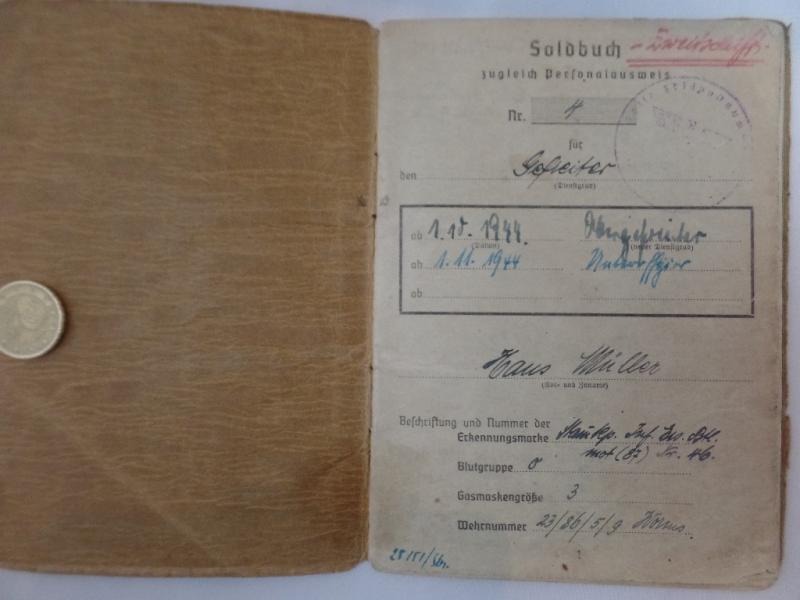 Soldbuch - Zweitschrift.
zugleich Personalausweis
Nr. 4
für
den Gefreiter
(Dienstgrad)
ab 1.10.1944 Obergefreiter
(Datum) (neuer Dienstgrad)
ab 1.11.1944 Unteroffizier
ab
Hans Müller
(Vor- und Zuname)
Beschriftung und Nummer der
Erkennungsmarke Stamkp. Inf. Ers. Btl.
mot (87) Nr. 46.
Blutgruppe O
Gasmaskengröße 3
Wehrnummer 23/86/5/9 Worms.